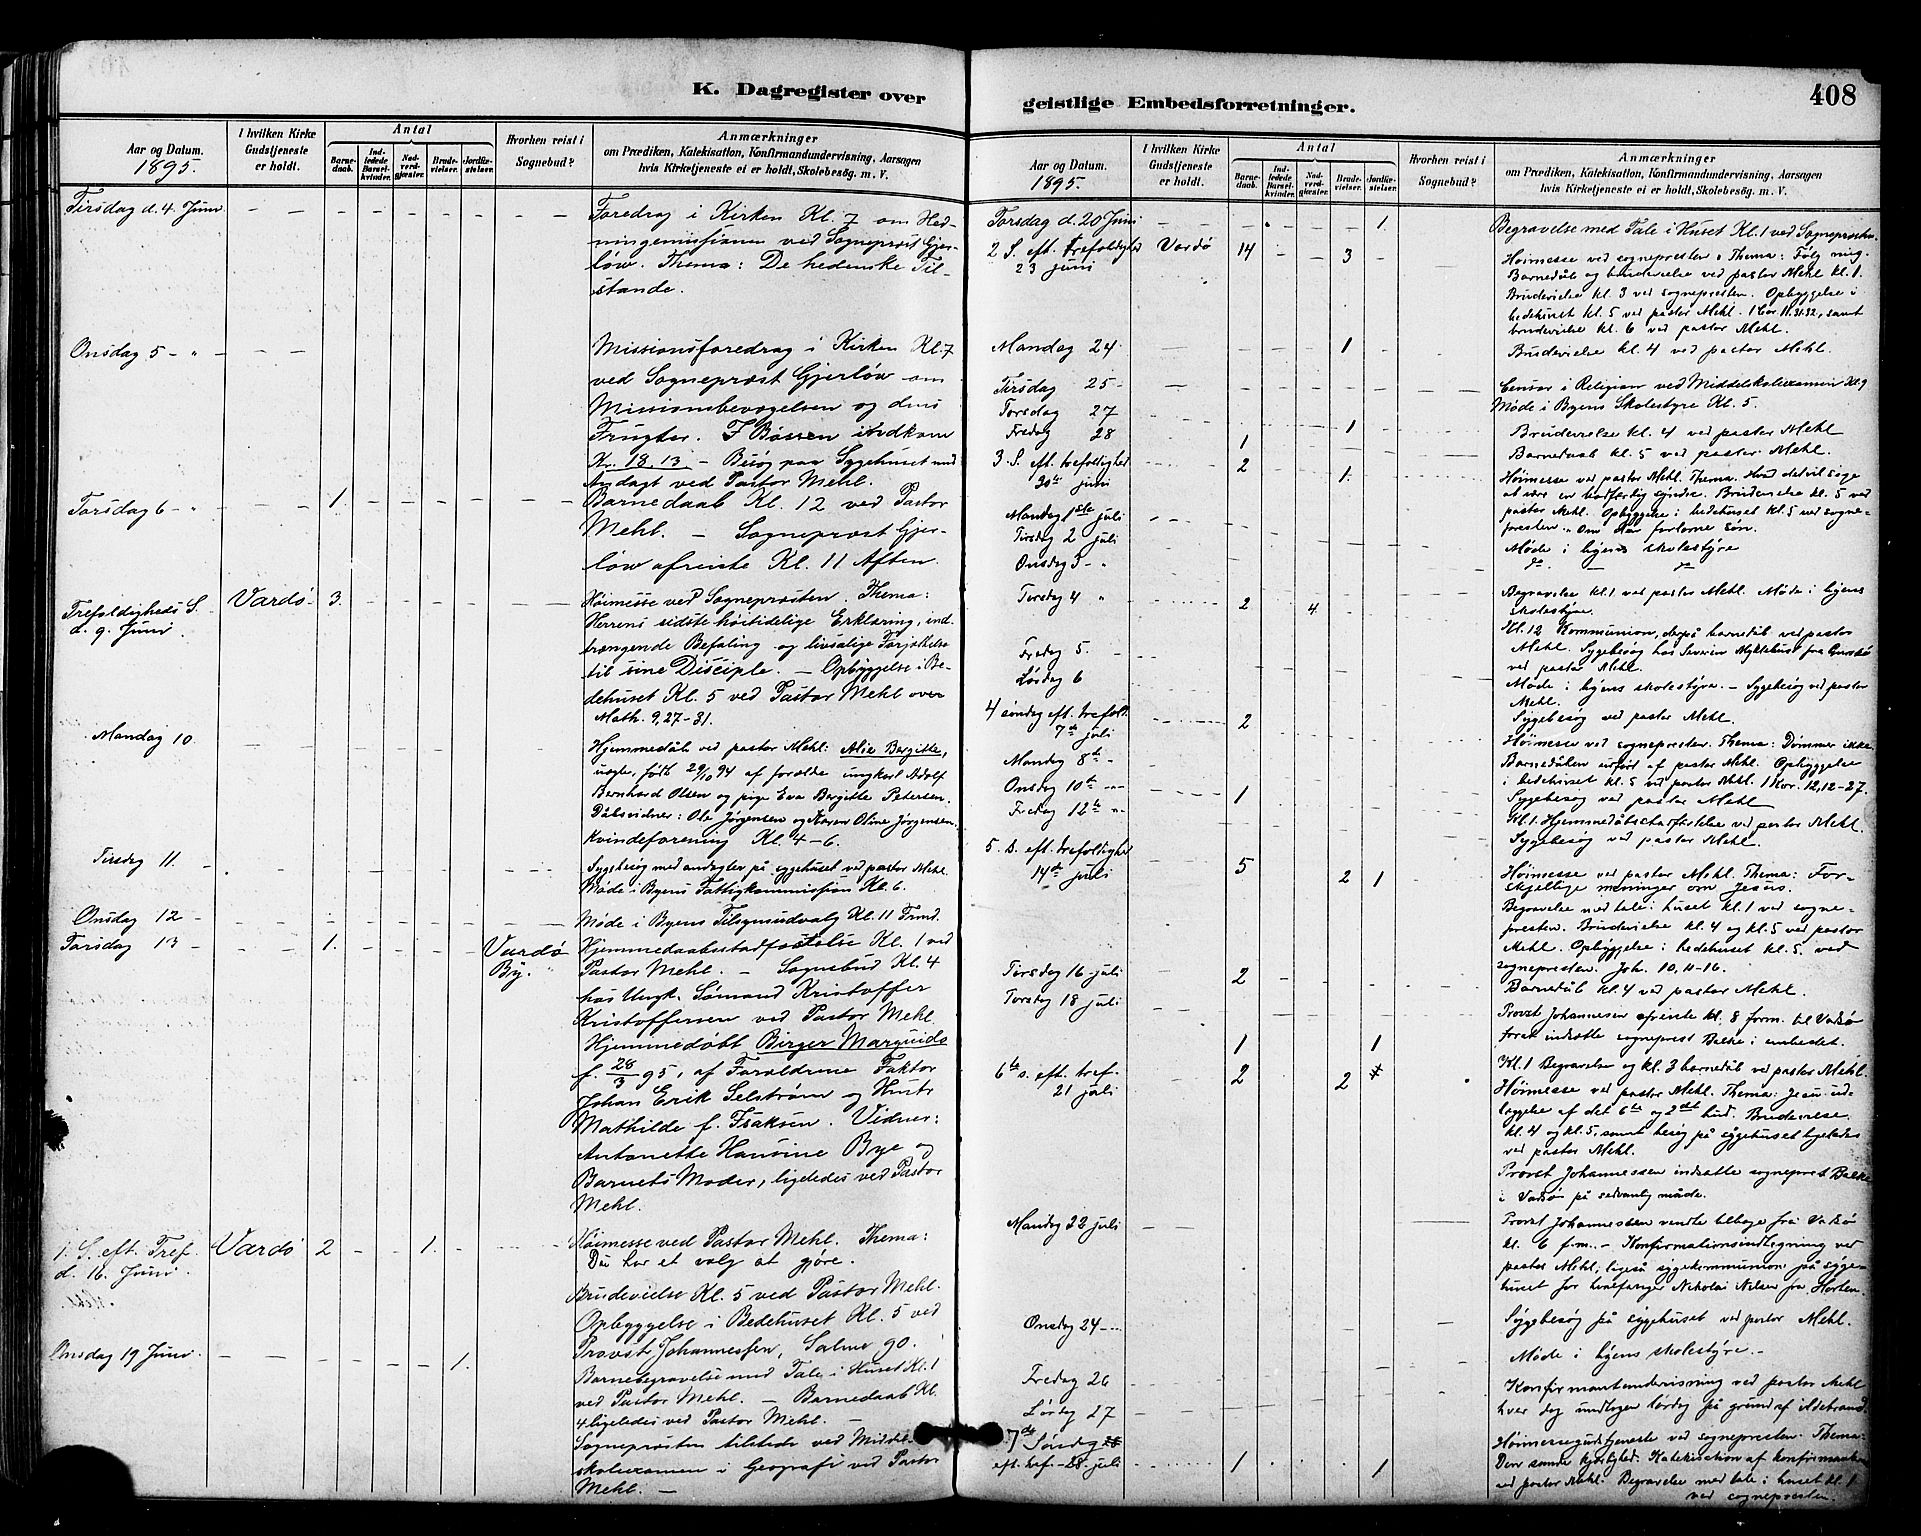 K. Dagregister over
geistlige Embedsforretninger.
408
Aar og Datum.
1895.
I hvilken Kirke
Gudstjeneste
er holdt.
Antal
Barne-
daab.
Ind-
ledede
Barsel-
kvinder.
Nad-
verd-
gjæster.
Brude-
vielser.
Jordfæ-
stelser.
Hvorhen reist i
Sognebud?
Anmærkninger
om Prædiken, Katekisation, Konfirmandundervisning, Aarsagen
hvis Kirketjeneste ei er holdt, Skolebesøg. m. V.
Tirsdag d. 4. Juni
Foredrag i Kirken Kl. 7 om Hed-
ningemissionen ved Sogneprest Gjer-
løw. Thema: De hedenske Til-
stande.
Onsdag 5 - "
Missionsforedrag i Kirken Kl. 7
ved Sogneprest Gjerløw om
Missionsbevægelsen og dens
Frugter. I Bøssen indkom
Kr. 18.13 - Besøg paa Sygehuset med
Andagt ved Pastor Mehl.
Torsdag 6 - "
1.
Barnedaab Kl. 12 ved Pastor
Mehl. - Sogneprost Gjer-
løw afreiste Kl. 11 Aften.
Trefoldigheds S.
d. 9. Juni
Vardø
3.
Høimesse ved Sogneprosten. Thema:
Herrens sidste høitidelige Erklæring, ind-
trængende Befaling og livsalige Forjættelse
til sine Disciple. - Opbyggelse i Be-
dehuset Kl. 5 ved Pastor Mehl over
Math. 9,27-31.
Mandag 10
Hjemmedåb ved pastor Mehl: Alie Bergitte,
uægte, født 29/10 94 af forældre ungkarl Adolf
Bernhard Olsen og pige Eva Bergitte Petersen.
Dåbsvidner: Ole Jørgensen og Karen Oline Jørgensen.
Kvindeforening Kl. 4-6.
Tirsdag 11
Sygebesøg med andagter på sygehuset ved pastor Mehl.
Møde i Byens Fattigkommission Kl. 6.
Onsdag 12
Møde i Byens Tilsynsudvalg Kl. 11 Form.
Torsdag 13
1.
Vardø
By.
Hjemmedaabsstadfæstelse Kl. 1 ved
Pastor Mehl. - Sognebud Kl. 4
hos Ungk. Sømand Kristoffer
Kristoffersen ved Pastor Mehl.
Hjemmedøbt Birger Marquids
f. 28/3 95, af Forældrene Faktor
Johan Erik Selstrøm og Hustr
Mathilde f. Isaksen. Vidner:
Antonette Hansine Bye og
Barnets Moder, ligeledes ved Pastor
Mehl.
1. S. eft. Tref.
d. 16. Juni
Vardø
2
1.
Høimesse ved Pastor Mehl. Thema:
Du har et valg at gjøre.
Brudevielse Kl. 5 ved Pastor Mehl.
Opbyggelse i Bedehuset Kl. 5 ved
Provst Johannessen, Salme 90.
Onsdag 19 Juni
1.
Barnebegravelse med Tale i Huset Kl. 1
ved Pastor Mehl. - Barnedaab Kl.
4 ligeledes ved Pastor Mehl. -
Sogneprosten tilstede ved Middel-
skolexamen i Geografi ved Pastor
Mehl. -
Aar og Datum.
1895.
I hvilken Kirke
Gudstjeneste
er holdt.
Antal
Barne-
daab.
Ind-
ledede
Barsel-
kvinder.
Nad-
verd-
gjæster.
Brude-
vielser.
Jordfæ-
stelser.
Hvorhen reist i
Sognebud?
Anmærkninger
om Prædiken, Katekisation, Konfirmandundervisning, Aarsagen
hvis Kirketjeneste ei er holdt, Skolebesøg. m. V.
Torsdag d. 20 Juni
1.
Begravelse med Tale i Huset Kl. 1 ved Sogneprosten.
2 S. eft. Trefoldighed
23 juni
Vardø
14
3
Høimesse ved sognepresten. Thema: Følg mig.
Barnedåb og brudevielse ved pastor Mehl kl. 1.
Brudevielse kl. 3 ved sognepresten. Opbyggelse i
bedehuset kl. 5 ved pastor Mehl. 1 Cor. 11.31.32, samt
brudevielse kl. 6 ved pastor Mehl.
Mandag 24
1
Brudevielse kl. 4 ved pastor Mehl.
Tirsdag 25
Censor i Religion ved Middelskolexamen Kl. 9
Torsdag 27
Møde i Byens Skolestyre Kl. 5.
Fredag 28
1
1
Brudevielse kl. 4 ved pastor Mehl
Barnedaab kl. 5 ved pastor Mehl.
3 S. eft. trefoldighed
30te juni
2
1.
Høimesse ved pastor Mehl. Thema: Hvad det vil sige
at være en bodfærdig synder. Brudevielse kl. 5 ved
pastor Mehl. Opbyggelse i bedehuset kl. 5 ved sogne-
presten. Om den forlorne søn.
Mandag 1ste juli
Møde i byens skolestyre
Tirsdag 2 juli
do. - do
Onsdag 3 - "
Begravelse kl. 1 ved pastor Mehl. Møde i byens
skolestyre.
Torsdag 4 "
2
4.
Kl. 12 Kommunion, derpå barnedåb ved pastor
Mehl. Sygebesøg hos Severin Myklebust fra
ved pastor Mehl.
Fredag 5.
Møde i byens skolestyre. - Sygebesøg ved pastor
Mehl.
Lørdag 6
Sygebesøg ved pastor Mehl.
4 søndag eft. trefold.
7de juli
2
Høimesse ved sognepresten. Thema: Dømmer ikke
Barnedåben udført af pastor Mehl. Opbyggelse
i bedehuset kl. 5 ved pastor Mehl. 1 Kor. 12,12-27.
Mandag 8de
Sygebesøg ved pastor Mehl
Onsdag 10de
1
Kl. 1. Hjemmedåbstadfæstelse ved pastor Mehl.
Fredag 12te
Sygebesøg ved pastor Mehl.
5. s. eft. trefoldighed
14de juli
5
2
1
Høimesse ved pastor Mehl. Thema: For-
skjellige meninger om Jesus.
Begravelse med tale i huset kl. 1 ved sogne-
presten. Brudevielse kl. 4 og kl. 5 ved pastor
Mehl. Opbyggelse i bedehuset kl. 5. ved
sognepresten. Joh. 10,11-16.
Torsdag 16 juli
2
Barnedåb kl. 4 ved pastor Mehl.
Torsdag 18 juli
Provst Johannesen afreiste kl. 8 form. til Vadsø
forat indsætte sogneprest Balke i embedet.
1
1
Kl. 1 Begravelse og kl. 3 barnedåb ved pastor Mehl.
6te s. eft. tref.
21 juli
2
2
Høimesse ved pastor Mehl. Thema: Jesu ud-
læggelse af det 6te og 2det bud. Brudevielse
kl. 4 og kl. 5, samt besøg på sygehuset ligeledes
ved pastor Mehl.
Provst Johannessen indsatte sogneprest Balke
i Vadsø på sedvanlig måde.
Mandag 22 juli
Provst Johannessen vendte tilbage fra Vadsø
kl. 6 f.m. - Konfirmationsindtegning ved
pastor Mehl; ligeså sygekommunion på syge-
huset for hvalfanger Nikolai Nilsen fra Horten.
Onsdag 24
Sygebesøg på sygehuset ved pastor Mehl.
Møde i byens skolestyre. -
Fredag 26
Konfirmantundervisning ved pastor Mehl
Lørdag 27
hver dag undtagen lørdag på grund af ildebrand.
7de Søndag
eft. tref. - 28. juli
1
1
Høimessegudstjeneste ved sognepresten. Thema:
Den sande kjærlighed. Katekisation af konfirmanterne
ved pastor Mehl. Begravelse med tale i huset kl. 1
ved sognepresten.